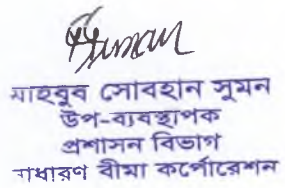 Suman
মাহবুব সোবহান সুমন
উপ-ব্যবস্থাপক
প্রশাসন বিভাগ
সাধারণ বীমা কর্পোরেশন